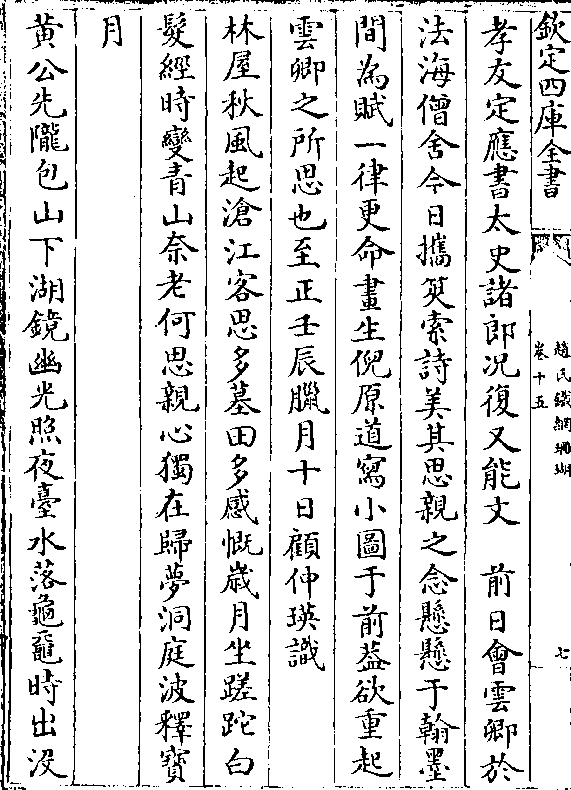 欽定四庫全書
趙氏鐵網珊瑚
卷十五
七
孝友定應書太史諸郎况復又能文　前日會雲卿於
法海僧舍今日攜筴索詩美其思親之念懸懸于翰墨
間為賦一律更命畫生倪原道寫小圖于前葢欲重起
雲卿之所思也至正壬辰臘月十日顧仲瑛識
林屋秋風起滄江客思多墓田多感慨歳月坐蹉跎白
髮經時變青山奈老何思親心獨在歸夢洞庭波釋寶
月
黄公先隴包山下湖鏡幽光照夜臺水落龜鼉時出没